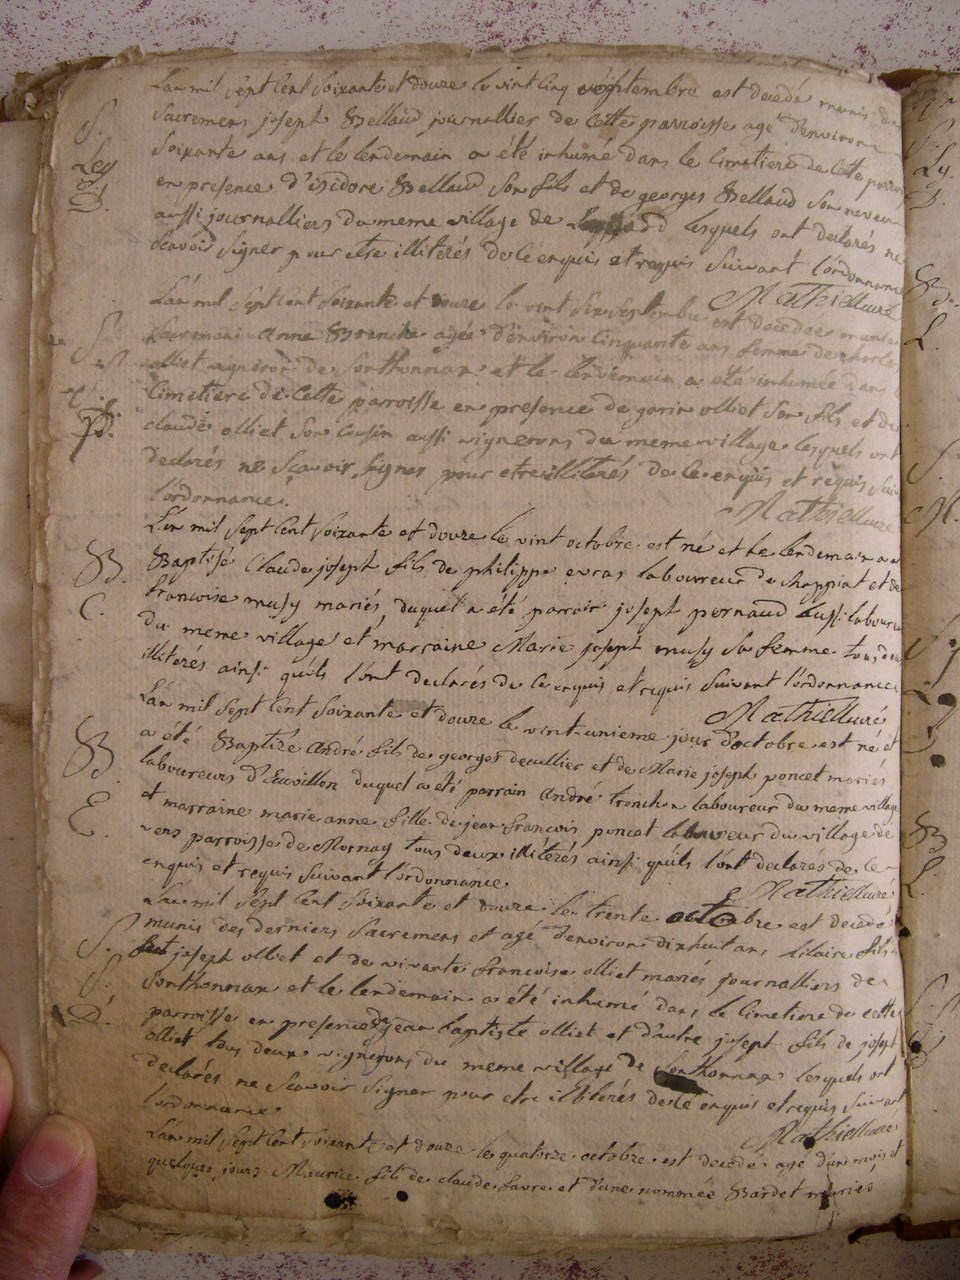 L'an mil sept cent soixante et douze le vint cinq septembre est decedé munis des
S.
sacremens josept Bellaud journallier de cette parroisse agé d'environ
Ley
soixante ans et le lendemain a été inhumé dans le cimetiere de cette parroi
D.
en presence d'isidore Bellaud son fils et de georges Bellaud son neveu
aussi journalliers du meme village de lesquels ont declarés ne
scavoir signer pour etre illitérés de ce enquis et requis suivant l'ordonnance
Mathieu curé
L'an mil sept cent soixante et douze le vint six septembre est decedée munie
S.
sacremens anne Branche agée d'environ cinquante ans femme de
olliet vigneron de Sonthonnax et le lendemain a été inhumée dans
cimetiere de cette parroisse en presence de olliet son fils et de
claude olliet son cousin aussi vignerons du meme village lesquels ont
declarés ne scavoir signer pour etre illitérés de ce enquis et requis suiv
l'ordonnance.
Mathieu curé
L'an mil sept cent soixante et douze le vint octobre est né et le lendemain a é
B.
Baptisé Claude josept fils de philippe evras laboureur de chappiat et de
C.
francoise musy mariés duquel a été parrain josept pernaud aussi laboureu
du meme village et marraine Marie josept musy sa femme tous deux
illitérés ainsi quils l'ont declarés de ce enquis et requis suivant l'ordonnance
Mathieu curé
L'an mil sept cent soixante et douze le vint unieme jour d'octobre est né et
B.
a été Baptizé andré fils de georges decullier et de Marie joseph poncet mariés
laboureurs d'Euvillon duquel a été parrain andré tronchon laboureur du meme village
E.
et marraine marie anne fille de jean francois poncet laboureur du village de
vens parroisse de Mornay tous deux illitérés ainsi quils l'ont declarés de ce
enquis et requis suivant l'ordonnance.
Mathieu curé
L'an mil sept cent soixante et douze le trente octobre est decedé
S.
munis des derniers sacremens et agé d'environ dixhuit ans hilaire fils
S.
josept olliet et de vivante francoise olliet mariés journalliers de
Sonthonnax et le lendemain a été inhumé dans le cimetiere de cette
D.
parroisse en presence de jean baptiste olliet et d'autre josept fils de josept
olliet tous deux vignerons du meme village de Sonthonnax lesquels ont
declarés ne scavoir signer pour etre illitérés de ce enquis et requis suivant
l'ordonnance.
Mathieu curé
L'an mil sept cent soixante et douze le quatorze octobre est decedé agé d'un mois et
quelques jours Maurice fils de claude favre et d'une nommée Bardet mariés